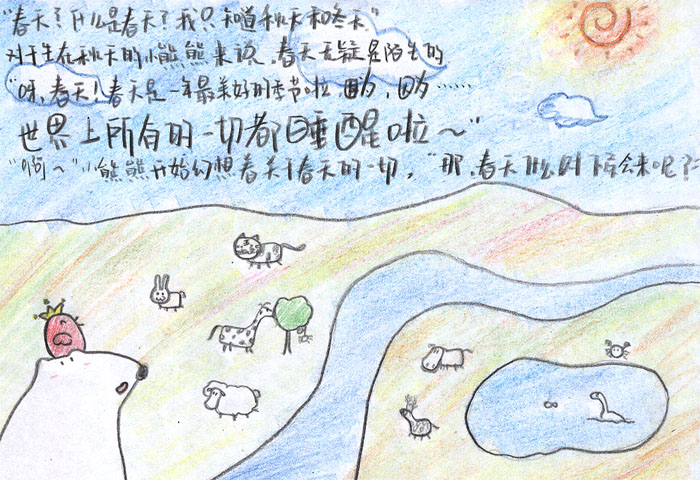 "春天？什么是春天？我只知道秋天和冬天"
对于生在秋天的小熊熊来说，春天无疑是陌生的
"呀，春天！春天是一年最美好的季节啦，因为，因为……
世界上所有的一切都睡醒啦～"
"啊～"小熊熊开始幻想着关于春天的一切，"那，春天什么时候会来呢？"